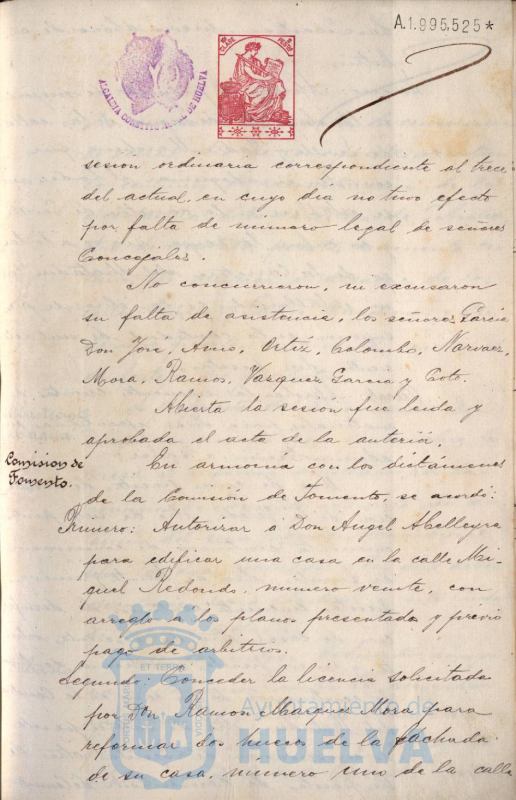 A.1.995,525*
ALCALDIA CONSTITUCIONAL DE HUELVA
sesión ordinaria correspondiente al trece
del actual, en cuyo dia no tuvo efecto
por falta de número legal de señores
Concejales.
No concurrieron, ni excusaron
su falta de asistencia, los señores García
Don José, Amo, Ortíz, Colombo, Narvaez,
Mora, Ramos, Vazquez Garcia y Coto.
Abierta la sesión fue leida y
aprobada el acta de la anterior.
Comision de
Fomento.
En armonía con los dictámenes
de la Comisión de Fomento, se acordó:
Primero: Autorizar á Don Angel
para edificar una casa en la calle Mi-
guel Redondo, número veinte, con
arreglo a los planos presentados y previo
pago de arbitrios.
Segundo: Conceder la licencia solicitada
por Don Ramon Marquez Mora para
reformar dos huecos de la fachada
de su casa, número uno de la calle
Ayuntamiento de
HUELVA